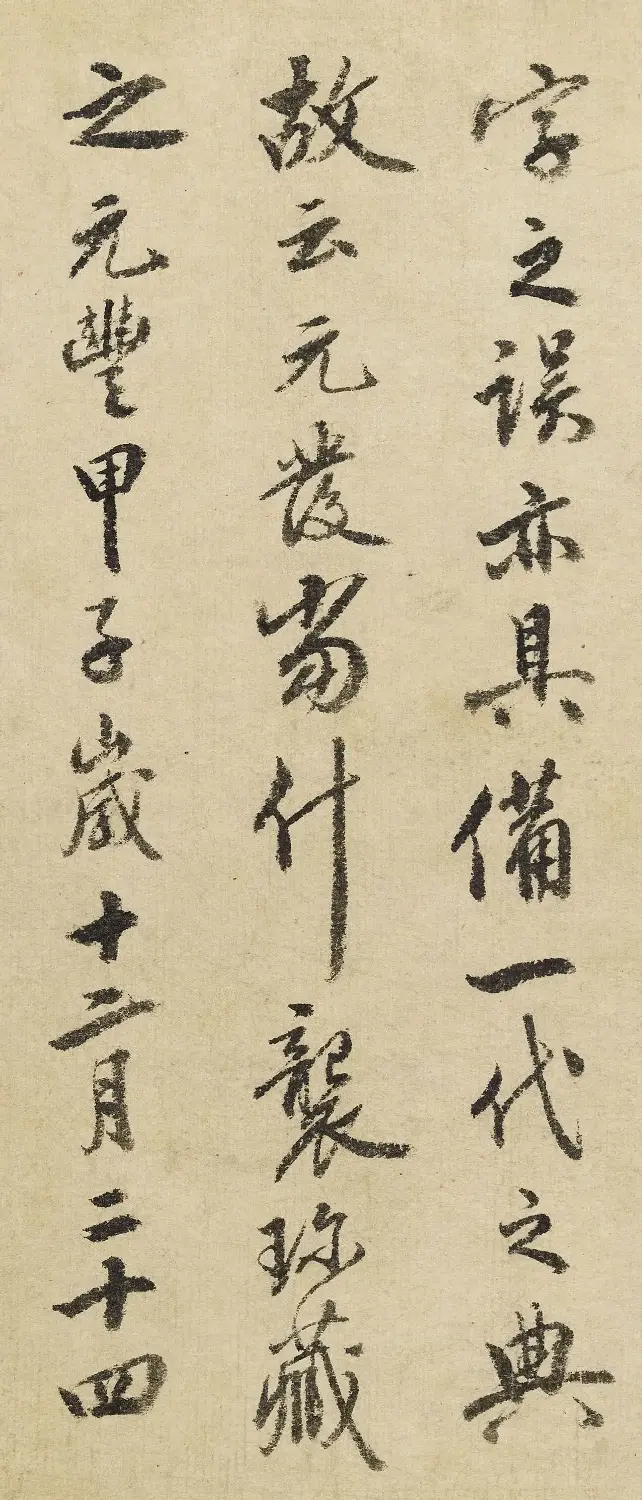 字之误亦具備一代之典
故云元發當什襲珎藏
之元豐甲子歲十二月二十四